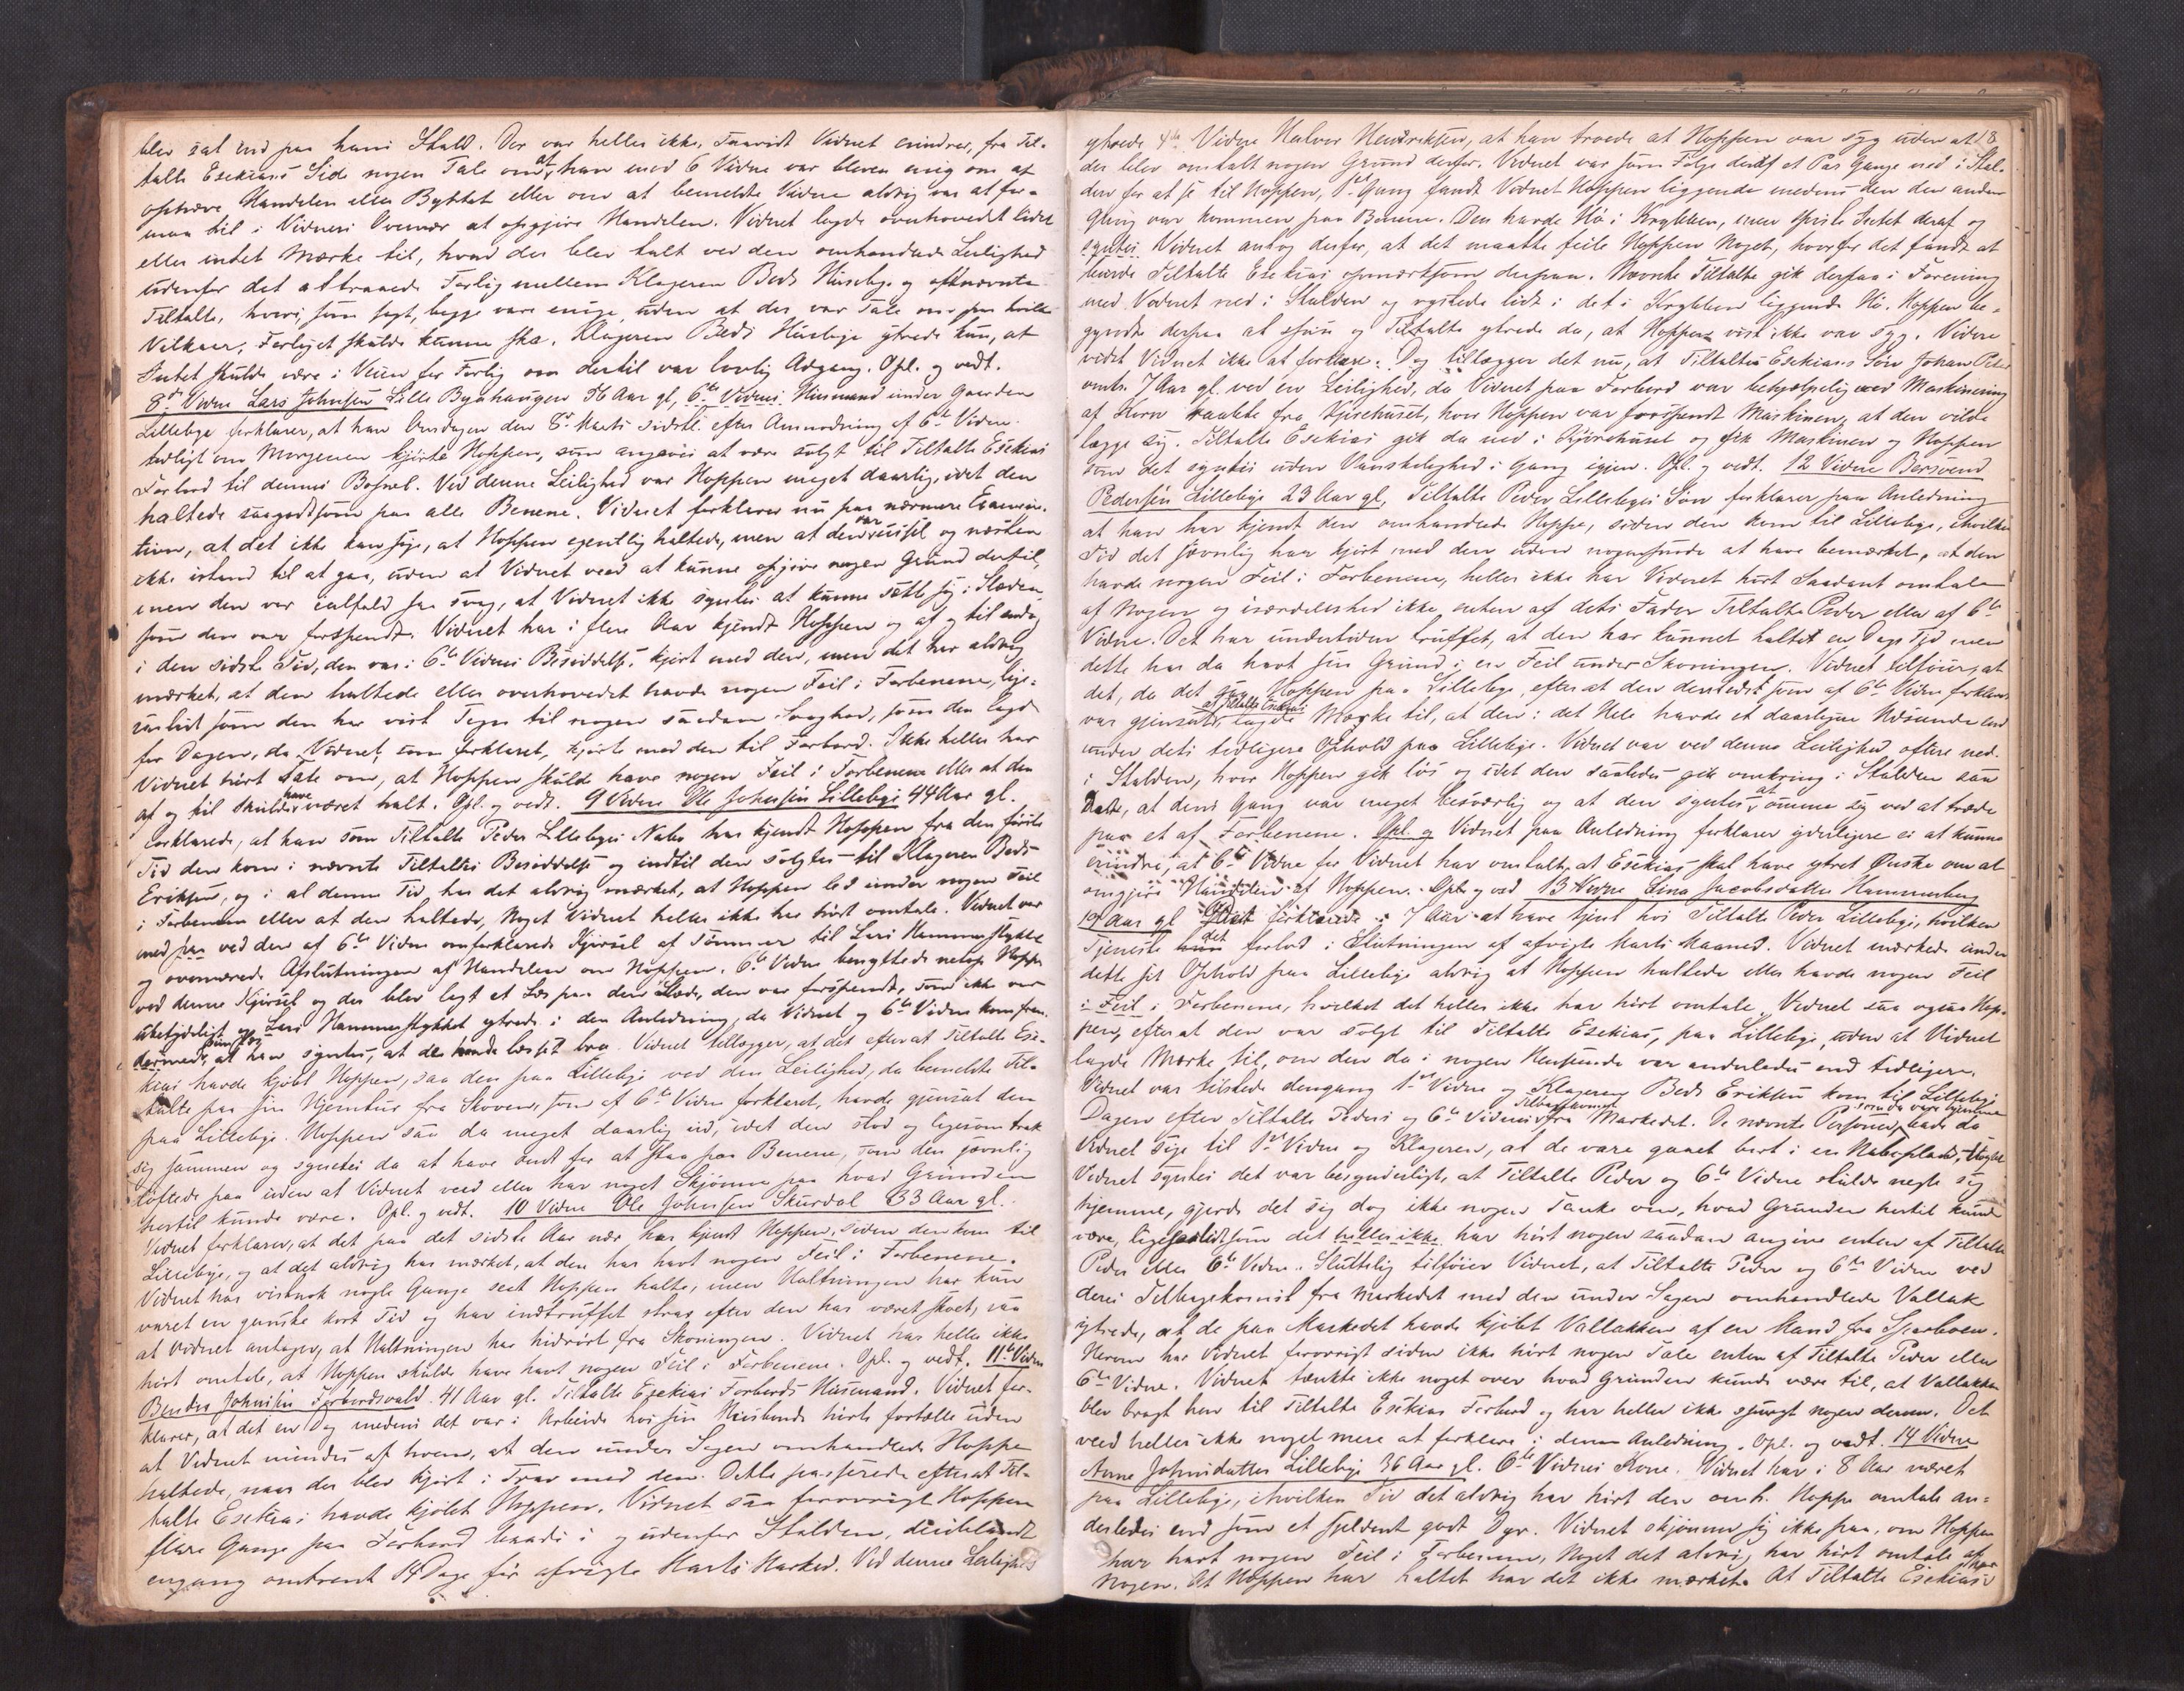 blev sat ind paa hans Stald. Der var heller ikke, saavidt Vidnet erindrer, fra Til-
talte Esekias's Side nogen Tale om, at han med 6 Vidne var bleven enig om at
ophæve Handelen eller Byttet eller om at bemeldte Vidne aldrig var at for-
maa til i Vidnets Overvær at opgjøre Handelen. Vidnet lagde overhovedet lidet
eller intet Mærke til, hvad der blev talt ved den omhandlede Leilighed
udenfor det attraaede Forlig mellem Klageren Beds Huseby og oftnævnte
Tiltalte, hvori, som sagt, begge vare enige, uden at der var Tale om paa hvilke
Vilkaar, Forliget skulde kunne ske. Klageren Beds Husebye ytrede kun, at
Intet skulde være i Veien for Forlig om dertil var lovlig Adgang. Opl. og vedt.
8de Vidne Lars Johnsen Lille Byahaugen 56 Aar gl, 6te Vidnes Husmand under Gaarden
Lillebye forklarer, at han Onsdagen den 8de Marts sidstl. efter Anmodning af 6te Vidne
tidligt om Morgenen kjørte Hoppen, som angaves at være solgt til Tiltalte Esekias
Forbord til dennes Bopæl. Ved denne Leilighed var Hoppen meget daarlig, idet den
haltede saagodtsom paa alle Benene. Vidnet forklarer nu paa nærmere Examina-
tion, at det ikke kan sige, at Hoppen egentlig haltede, men at den var ussel og næsten
ikke istand til at gaa, uden at Vidnet veed at kunne opgive nogen Grund dertil,
men den var ialfald saa svag, at Vidnet ikke syntes at kunne sætte sig i Slæden,
som den var forspændt. Vidnet har i flere Aar kjendt Hoppen og af og til endog
i den sidste Tid, den var i 6te Vidnes Besiddelse, kjørt med den, men det har aldrig
mærket, at den haltede eller overhovedet havde nogen Feil i Forbenene, lige-
saalidt som den har vist Tegn til nogen saadan Svaghed, som den lagde
for Dagen, da Vidnet, som forklaret, kjørte med den til Forbord. Ikke heller har
Vidnet hørt Tale om, at Hoppen skulde have nogen Feil i Forbenene eller at den
af og til skulde have været halt. Opl. og vedt. 9 Vidne Ole Johnsen Lillebye 44 Aar gl.
forklarede, at han som Tiltalte Peder Lillebyes Nabo har kjendt Hoppen fra den første
Tid den kom i nævnte Tiltaltes Besiddelse og indtil den solgtes til Klageren Beds
Eriksen, og i al denne Tid, har det aldrig mærket, at Hoppen led under nogen Feil
i Forbenene eller at den haltede, Noget Vidnet heller ikke har hørt omtale. Vidnet var
med paa ved den af 6te Vidne omforklarede Kjørsel af Tømmer til Lars Hammerstykket
og overværede Afslutningen af Handelen om Hoppen. 6te Vidne benyttede netop Hoppen
ved denne Kjørsel og der blev lagt et Læs paa den Slæde, den var forspændt, som ikke var
ubetydeligt og Lars Hammerstykket ytrede i den Anledning, da Vidnet og 6te Vidne kom frem
dermed, at han syntes, at de havde læsset bra. Vidnet tillægger, at det efterat Tiltalte Ese-
kias havde kjøbt Hoppen, saa den paa Lillebye ved den Leilighed, da bemeldte Til-
talte paa sin Hjemtur fra Skoven, som af 6te Vidne forklaret, havde gjensat den
paa Lillebye. Hoppen saa da meget daarlig ud, idet den stod og ligesom trak
sig sammen og syntes da at have ondt for at staa paa Benene, som den jævnlig
løftede paa uden at Vidnet veed eller har noget Skjønne paa hvad Grunden
hertil kunde være. Opl. og vedt. 10 Vidne Ole Johnsen Skurdal 33 Aar gl.
Vidnet forklarer, at det paa det sidste Aar nær har kjendt Hoppen, siden den kom til
Lillebye, og at det aldrig har mærket, at den har havt nogen Feil i Forbenene.
Vidnet har vistnok nogle Gange seet Hoppen halte, men Haltningen har kun
varet en ganske kort Tid og har indtruffet strax efter den har været skoet, saa
at Vidnet antager, at Haltningen har hidrørt fra Skoningen. Vidnet har heller ikke
hørt omtale, at Hoppen skulde have havt nogen Feil i Forbenene. Opl. og vedt. 11te Vidne
Johnsen Forbordsvald 41 Aar gl. Tiltalte Esekias Forbords Husmand. Vidnet for-
klarer, at det en Dag medens det var i Arbeide hos sin Huusbonde hørte fortælle uden
at Vidnet mindes af hvem, at den under Sagen omhandlede Hoppe
haltede, naar der blev kjørt i Trav med den. Dette passerede efterat Til-
talte Esekias havde kjøbt Hoppen. Vidnet saa forøvrigt Hoppen
flere Gange paa Forbord baade i og udenfor Stalden, deriblandt
engang omtrent 14 Dage før afvigte Marts Marked. Ved denne Leilighed
18
ytrede 4de Vidne Halvor Hendriksen, at han troede at Hoppen var syg uden at
der blev omtalt nogen Grund derfor. Vidnet var som Følge deraf et Par Gange ned i Stal-
den for at se til Hoppen, 1ste Gang fandt Vidnet Hoppen liggende medens den den anden
Gang var kommen paa Benene. Den havde Hø i Krybben, men spiste Intet deraf og
syntes Vidnet antog derfor, at det maatte feile Hoppen Noget, hvorfor det fandt at
burde Tiltalte Esekias opmærksom derpaa. Nævnte Tiltalte gik derpaa i Forening
med Vidnet ned i Stalden og rystede lidt i det i Krybben liggende Hø. Hoppen be-
gyndte derpaa at spise og Tiltalte ytrede da, at Hoppen vist ikke var syg. Videre
vidst Vidnet ikke at forklare. Dog tillægger det nu, at Tiltaltes Esekias's Søn Johan Peter
omtr. 7 Aar gl. ved en Leilighed, da Vidnet paa Forbord var behjælpelig med Maskinering
af Korn raabte fra Kjørehuset, hvor Hoppen var forspændt Maskinen, at den vilde
lægge sig. Tiltalte Esekias gik da ned i Kjørehuset og fik Maskinen og Hoppen
som det syntes uden Vanskelighed i Gang igjen. Opl. og vedt. 12 Vidne Bersvend
Pedersen Lillebye 23 Aar gl, Tiltalte Peder Lillebyes Søn forklarer paa Anledning
at han har kjendt den omhandlede Hoppe, siden den kom til Lillebye, ihvilken
Tid det jævnlig har kjørt med den uden nogensinde at have bemærket, at den
havde nogen Feil i Forbenene, heller ikke har Vidnet hørt Saadant omtale
af Nogen og isærdeleshed ikke enten af dets Fader Tiltalte Peder eller af 6te
Vidne. Det har undertiden truffet, at den har kunnet haltet en Dags Tid men
dette har da havt sin Grund i en Feil under Skoningen. Vidnet tilføier, at
det, da det saa Hoppen paa Lillebye, efterat den dersteds som af 6te Vidne forklaret
var gjensat af Tiltalte Esekias, lagde Mærke til, at den i det Hele havde et daarligere Udseende end
under dets tidligere Ophold paa Lillebye. Vidnet var ved denne Leilighed oftere ned
i Stalden, hvor Hoppen gik løs og idet den saaledes gik omkring i Stalden saa
Dette, at dens Gang var meget besværlig og at den syntes at ømme sig ved at træde
paa et af Forbenene. Opl. og Vidnet paa Anledning forklarer yderligere ei at kunne
erindre, at 6te Vidne for Vidnet har omtalt, at Esekias skal have ytret Ønske om at
omgjøre Handelen af Hoppen. Opl. og ved 13 Vidne Lina Jacobsdatter Hammerberg
19 Aar gl forklarede i 7 Aar at have tjent hos Tiltalte Peder Lillebye, hvilken
Tjeneste det forlod i Slutningen af afvigte Marts Maaned. Vidnet mærkede under
dette sit Ophold paa Lillebye aldrig at Hoppen haltede eller havde nogen Feil
i Feil i Forbenene, hvilket det heller ikke har hørt omtale. Vidnet saa ogsaa Hop-
pen, efterat den var solgt til Tiltalte Esekias, paa Lillebye, uden at Vidnet
lagde Mærke til, om den da i nogen Henseende var anderledes end tidligere.
Vidnet var tilstede dengang 1ste Vidne og Klageren Beds Eriksen kom til Lillebye
Dagen efter Tiltalte Peders og 6te Vidnes Tilbagekomst fra Markedet. De nævnte Personer, som da vare hjemme bade da
Vidnet sige til 1ste Vidne og Klageren, at de vare gaaet bort i en Naboplads, uagtet
Vidnet syntes det var besynderligt, at Tiltalte Peder og 6te Vidne skulde negte sig
hjemme, gjorde det sig dog ikke nogen Tanke om, hvad Grunden hertil kunde
være, ligesaalidt som det heller ikke har hørt nogen saadan angive enten af Tiltalte
Peder eller 6te Vidne. Sluttelig tilføier Vidnet, at Tiltalte Peder og 6te Vidne ved
deres Tilbagekomst fra Markedet med den under Sagen omhandlede Vallak
ytrede, at de paa Markedet havde kjøbt Vallakken af en Mand fra Sparboen.
Herom har Vidnet forøvrigt siden ikke hørt nogen Tale enten af Tiltalte Peder eller
6te Vidne. Vidnet tænkte ikke noget over hvad Grunden kunde være til, at Vallakken
blev bragt hen til Tiltalte Esekias Forbord og har heller ikke spurgt nogen derom. Det
veed heller ikke noget mere at forklare i denne Anledning. Opl. og vedt. 14 Vidne
Anne Johnsdatter Lillebye 36 Aar gl. 6te Vidnes Kone. Vidnet har i 8 Aar været
paa Lillebye, ihvilken Tid det aldrig har hørt den omh. Hoppe omtale an-
derledes end som et sjeldent godt Dyr. Vidnet skjønner sig ikke paa, om Hoppen
har havt nogen Feil i Forbenene, Noget det aldrig har hørt omtale af
Nogen. At Hoppen har haltet har det ikke mærket. At Tiltalte Esekias